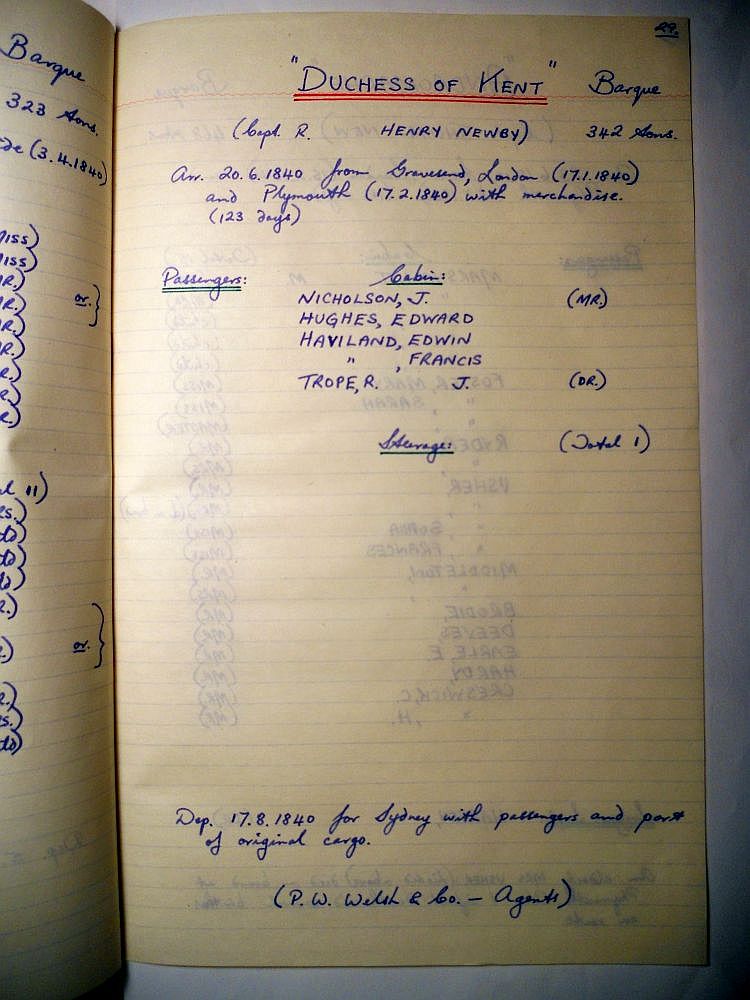 Barque
323 tons.
(3.4.1840)
MISS)
MISS)
R.)
R.)
or.
R.)
R.)
R.)
R.)
R.)
11)
s.)
R.)
or.
R.)
s.)
29.
"DUCHESS OF KENT" Barque
(Capt. R. HENRY NEWBY) 342 tons.
Arr. 20.6.1840 from Gravesend, London (17.1.1840)
and Plymouth (17.2.1840) with merchandise.
(123 days)
Passengers: Cabin:
NICHOLSON, J. (MR.)
HUGHES, EDWARD
HAVILAND, EDWIN
" , FRANCIS
TROPE, R. J. (DR.)
Steerage: (Total 1)
Dep. 17.8.1840 for Sydney with passengers and part
of original cargo.
(P. W. Welsh & Co. – Agents)